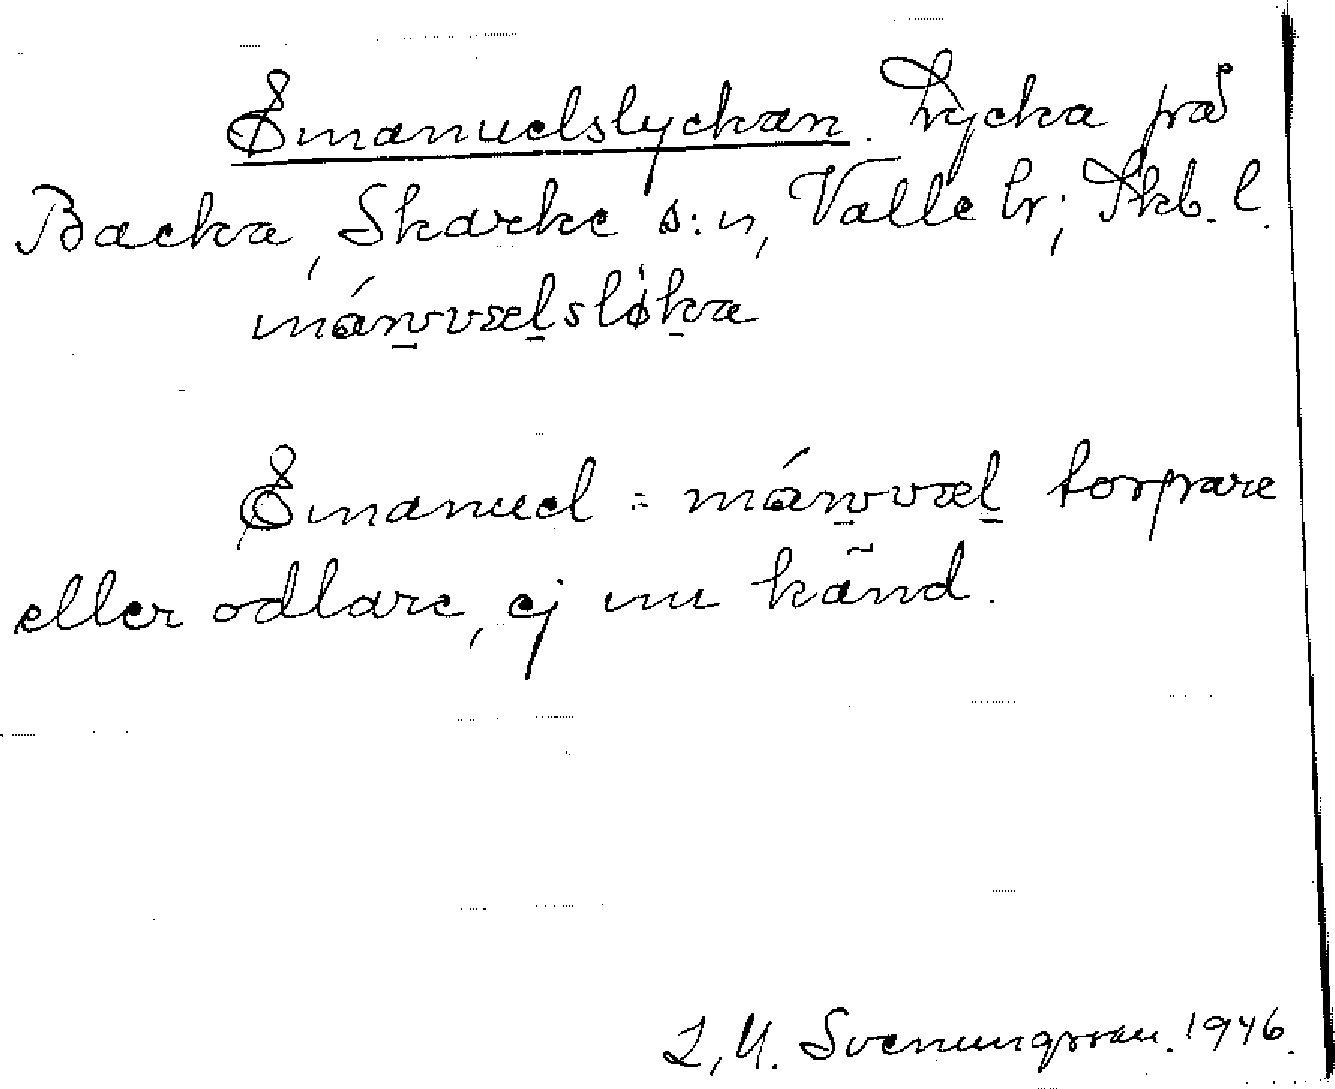 Emanuelslyckan. Lycka på
Backa, Skarke s:n, Valle hr; Skb. l.
mánvvælsløka
Emanuel = mánvvæl torpare
eller odlare, ej nu känd.
L. M. Svenungsson. 1946.